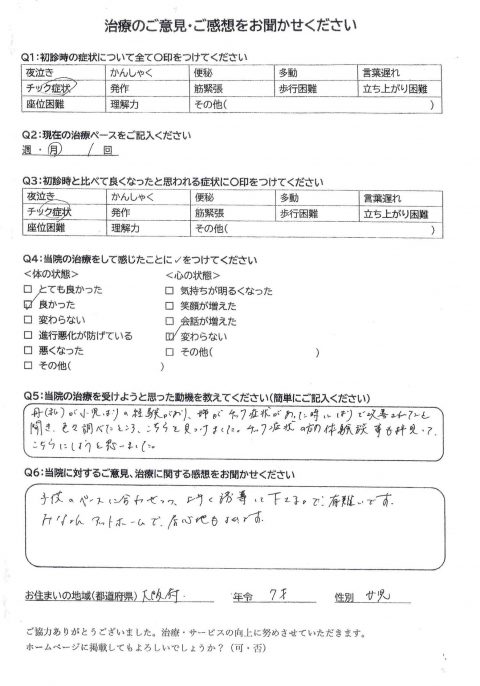 治療のご意見・ご感想をお聞かせください
Q1:初診時の症状について全て〇印をつけてください
夜泣き かんしゃく 便秘 多動 言葉遅れ
チック症状 発作 筋緊張 歩行困難 立ち上がり困難
座位困難 理解力 その他( )
Q2:現在の治療ペースをご記入ください
週・月 1 回
Q3:初診時と比べて良くなったと思われる症状に〇印をつけてください
夜泣き かんしゃく 便秘 多動 言葉遅れ
チック症状 発作 筋緊張 歩行困難 立ち上がり困難
座位困難 理解力 その他( )
Q4:当院の治療をして感じたことに✓をつけてください
<体の状態> <心の状態>
□ とても良かった □ 気持ちが明るくなった
☑ 良かった □ 笑顔が増えた
□ 変わらない □ 会話が増えた
□ 進行悪化が防げている ☑ 変わらない
□ 悪くなった □ その他( )
□ その他( )
Q5:当院の治療を受けようと思った動機を教えてください(簡単にご記入ください)
母(私)が小児はりの経験があり、姉がチック症状があった時にはりで改善されたと
聞き、色々調べたところ、こちらを見つけました。チック症状の方の体験談等も拝見して、
こちらにしようと思いました。
Q6:当院に対するご意見、治療に関する感想をお聞かせください
子供のペースに合わせつつ、上手く誘導して下さるので、有難いです。
みなさんアットホームで、居心地もよいです。
お住まいの地域(都道府県) 大阪府 年令 7才 性別 女児
ご協力ありがとうございました。治療・サービスの向上に努めさせていただきます。
ホームページに掲載してもよろしいでしょうか？（可・否）